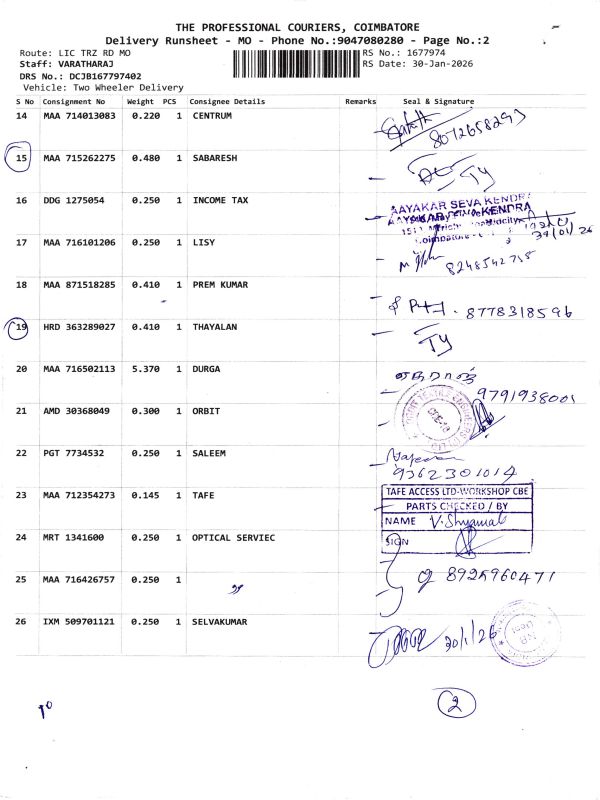 THE PROFESSIONAL COURIERS, COIMBATORE
Delivery Runsheet - MO - Phone No.:9047080280 - Page No.:2
Route: LIC TRZ RD MO RS No.: 1677974
Staff: VARATHARAJ RS Date: 30-Jan-2026
DRS No.: DCJB167797402
Vehicle: Two Wheeler Delivery
S No Consignment No Weight PCS Consignee Details Remarks Seal & Signature
14 MAA 714013083 0.220 1 CENTRUM
8072658293
15 MAA 715262275 0.480 1 SABARESH
TY
16 DDG 1275054 0.250 1 INCOME TAX
AAYAKAR SEVA KENDRA
17 MAA 716101206 0.250 1 LISY
30/01/26
8248542715
18 MAA 871518285 0.410 1 PREM KUMAR
8778318596
19 HRD 363289027 0.410 1 THAYALAN
TY
20 MAA 716502113 5.370 1 DURGA
9791938001
21 AMD 30368049 0.300 1 ORBIT
22 PGT 7734532 0.250 1 SALEEM
9362301014
23 MAA 712354273 0.145 1 TAFE
TAFE ACCESS LTD-WORKSHOP CBE
PARTS CHECKED / BY
NAME V. Shyamala
SIGN
24 MRT 1341600 0.250 1 OPTICAL SERVIEC
25 MAA 716426757 0.250 1
8925960471
26 IXM 509701121 0.250 1 SELVAKUMAR
30/1/26
2